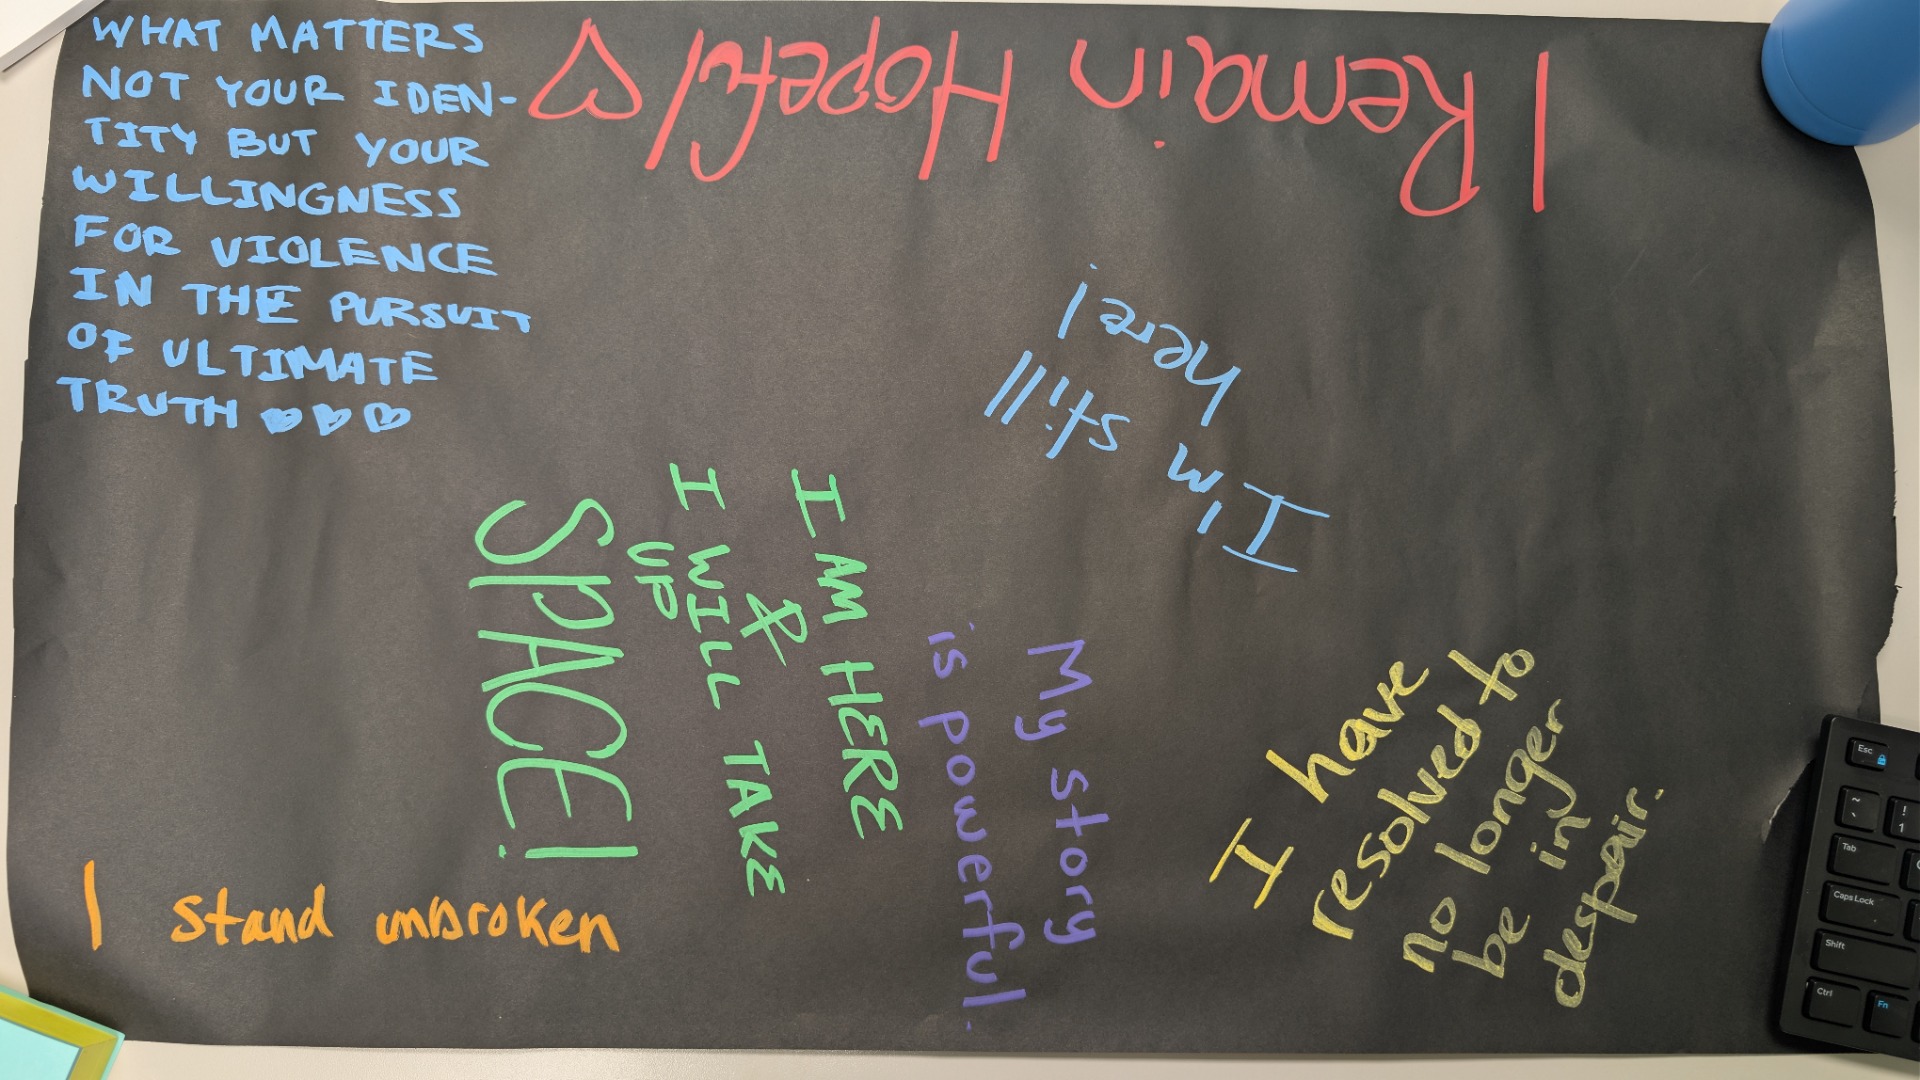 WHAT MATTERS
NOT YOUR IDEN-
TITY BUT YOUR
WILLINGNESS
FOR VIOLENCE
IN THE PURSUIT
OF ULTIMATE
TRUTH
I Remain Hopeful
I'm still
here!
I AM HERE
&
I WILL TAKE
UP
SPACE!
My story
is powerful.
I have
resolved to
no longer
be in
despair.
I stand unbroken
Esc
~
`
!
1
Tab
Caps Lock
Shift
Ctrl
Fn